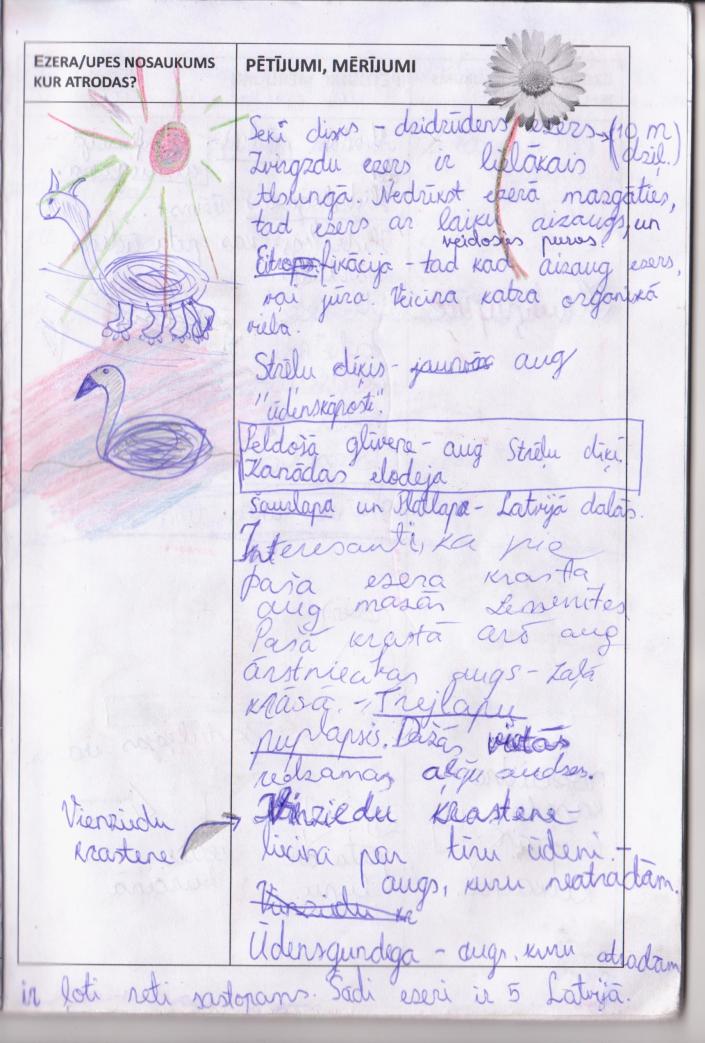 EZERA/UPES NOSAUKUMS
KUR ATRODAS?
PĒTĪJUMI, MĒRĪJUMI
Seki disks - dzidrūdens ezers → (10 m)
dziļ.)
Zvirgzdu ezers ir lielākais
Alsungā. Nedrīkst ezerā mazgāties,
tad ezers ar laiku aizaugs, un
veidosies purvs.
Eitrofikācija - tad kad aizaug ezers,
vai jūra. Veicina katra organiskā
viela.
Strēļu dīķis - aug
"ūdenskāposti".
Peldošā glīvene - aug Strēļu dīķī.
Kanādas elodeja
Šaurlapa un Platlapa - Latvijā dalās.
Interesanti, ka pie
paša ezera krasta
aug mazās
Pašā krastā arī aug
ārstniecības augs - zaļā
krāsā. - Trejlapu
puplaksis. Dažās vietās
redzamas aļģu audzes.
Vienziedu
krastene
Vienziedu krastene -
liecina par tīru ūdeni. -
augs, kuru neatradām.
Vienziedu kr
Ūdensgundega - augs, kuru atradām
ir ļoti reti sastopams. Šādi ezeri ir 5 Latvijā.